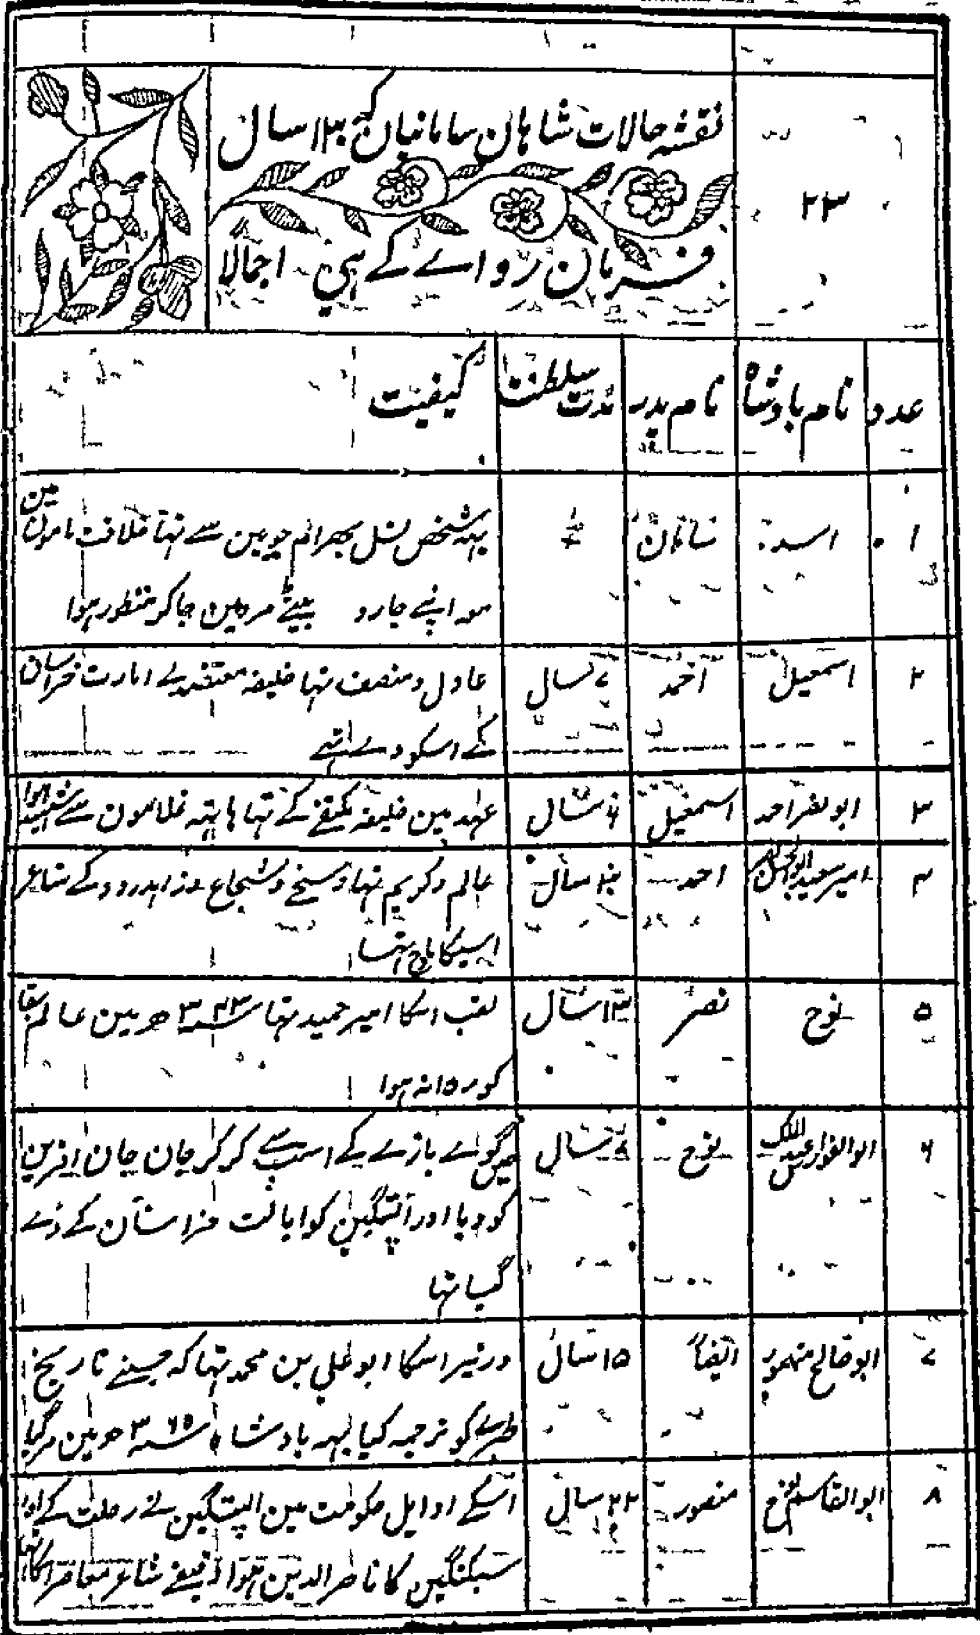 ۲۳
نقشہ حالات شاہان سامانیان کہ ۱۳۰ سال
فرمان رواے کے ہین اجمالًا
عدد نام بادشاہ نام پدر مدت سلطنت کیفیت
۱ اسد سامان یہہ شخص نسل بہرام چوبین سے تہا خلافت مامون مین
معہ اپنے چارو بیٹے مرو مین جاکر منظور ہوا
۲ اسمعیل احمد ۷ سال عادل و منصف تہا خلیفہ معتضد نے امارت خراسان
کے اسکو دے تہے
۳ ابو نصر احمد اسمعیل ۶ سال عہد مین خلیفہ مکتفے کے تہا ہاتہہ غلامون سے شہید ہوا
۴ امیر سعید ابو الحسن احمد ۳۰ سال عالم و کریم تہا و سخے و شجاع و زاہد رودکے شاعر
اسیکا مداح تہا
۵ نوح نصر ۱۳ سال لقب اسکا امیر حمید تہا سنہ ۳۴۳ھ مین عالم بقا
کو روانہ ہوا
۶ ابو الفوارس عبد الملک نوح سال گوے بازے کے اسپ سے گر کر جان جان افرین
کو دیا اور الپتگین کو ایالت خراسان کے دے
گیا تہا
۷ ابو صالح منصور ایضًا ۱۵ سال وزیر اسکا ابو علی بن محمد تہا کہ جسنے تاریخ
طبرے کو ترجمہ کیا یہہ بادشاہ سنہ ۳۶۵ھ مین مرگیا
۸ ابو القاسم نوح منصور ۲۲ سال اسکے اوایل حکومت مین الپتگین نے رحلت کے اور
سبکتگین کا ناصر الدین ہوا دقیقے شاعر معاصر اسکا تہا